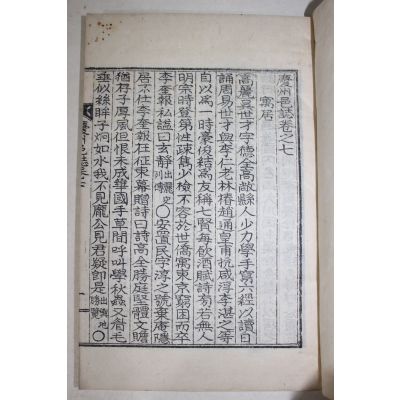 慶州邑誌卷之七
寓居
高麗吳世才字德全高敞縣人少力學手寫六經以讀日
誦周易世才與李仁老林椿趙通皇甫抗咸淳李湛之等
自以爲一時豪俊結爲友稱七賢每飮酒賦詩旁若無人
明宗時登第性疎雋少檢不容於世僑寓東京窮困而卒
李奎報私諡曰玄靜出麗史列傳○安置民字淳之號棄庵隱
居不仕李奎報在征東幕贈詩曰詩高全勝庭堅體文贍
猶存子厚風但恨未成華國手草間呼叫學秋蟲又
垂似絲眸子炯如水我不見龐公見君疑卽是出輿地勝覽○